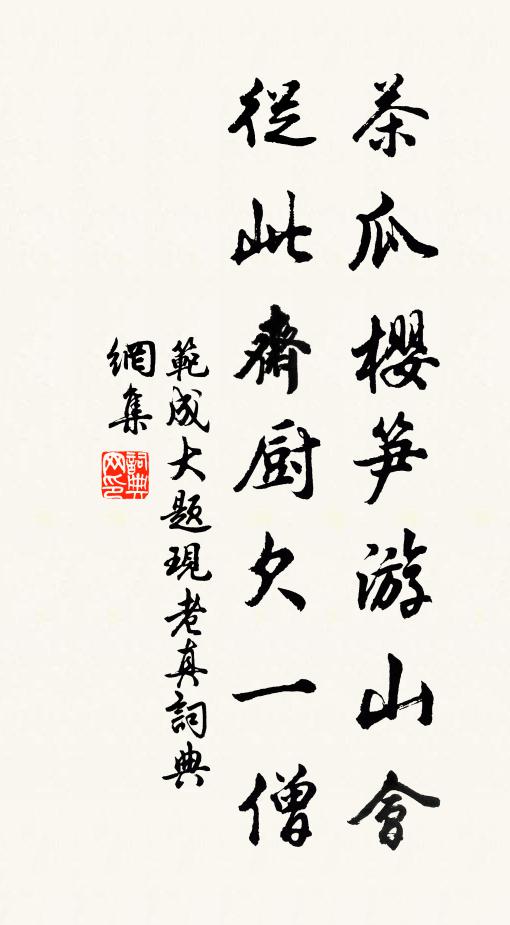 茶瓜櫻笋游山會
從此齋厨欠一僧
範成大题現老真詞典
網集
詞典网印